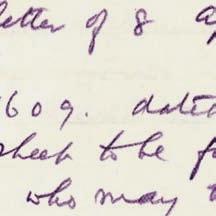 letter of 8
609. dated
sheet to be
who may